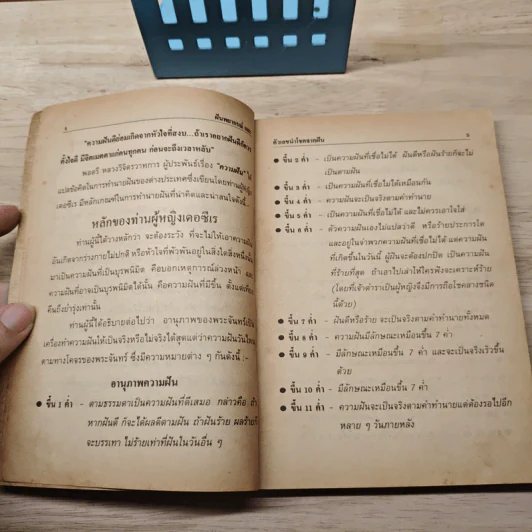 4 ฝันพยากรณ์
"ความฝันดีย่อมเกิดจากหัวใจที่สงบ...ถ้าเราอยากฝันดีก็ควร
ตั้งใจดี มีจิตเมตตาแก่คนทุกคน ก่อนจะถึงเวลาหลับ"
พลตรี หลวงวิจิตรวาทการ ผู้ประพันธ์เรื่อง "ความฝัน"
แปลข้อคิดในการทำนายฝันของต่างประเทศซึ่งเขียนโดยท่านผู้หญิง
เดอซีเร มีหลักเกณฑ์ในการทำนายฝันที่น่าคิดและน่าสนใจดังนี้
หลักของท่านผู้หญิงเดอซีเร
ท่านผู้นี้ได้วางหลักว่า จะต้องระวัง ที่จะไม่ให้เอาความฝัน
อันเกิดจากร่างกายไม่ปกติ หรือหัวใจที่พัวพันอยู่ในสิ่งใดสิ่งหนึ่ง
มาเป็นความฝันที่เป็นบุรพนิมิต คือบอกเหตุการณ์ล่วงหน้า
ความฝันที่อาจเป็นบุรพนิมิตได้นั้น คือความฝันที่มีขึ้น ตั้งแต่เที่ยง
คืนถึงรุ่งเท่านั้น
ท่านผู้นี้ได้อธิบายต่อไปว่า อานุภาพของพระจันทร์เป็น
เครื่องทำความฝันให้เป็นจริงหรือไม่จริงได้สุดแต่ว่าความฝันวันไหน
ตามทางโคจรของพระจันทร์ ซึ่งมีความหมายต่าง ๆ กันดังนี้ :-
อานุภาพความฝัน
● ขึ้น 1 ค่ำ - ตามธรรมดาเป็นความฝันที่ดีเสมอ กล่าวคือ ถ้า
หากฝันดี ก็จะได้ผลดีตามฝัน ถ้าฝันร้าย ผลร้ายก็
จะบรรเทา ไม่ร้ายเท่าที่ฝันในวันอื่น ๆ
ตัวเลขนำโชคจากฝัน 5
● ขึ้น 2 ค่ำ - เป็นความฝันที่เชื่อไม่ได้ ฝันดีหรือฝันร้ายก็จะไม่
เป็นตามฝัน
● ขึ้น 3 ค่ำ - เป็นความฝันที่เชื่อไม่ได้เหมือนกัน
● ขึ้น 4 ค่ำ - ความฝันจะเป็นจริงตามคำทำนาย
● ขึ้น 5 ค่ำ - เป็นความฝันที่เชื่อไม่ได้ และไม่ควรเอาใจใส่
● ขึ้น 6 ค่ำ - ตัวความฝันเองไม่แปลว่าดี หรือร้ายประการใด
และอยู่ในจำพวกความฝันที่เชื่อไม่ได้ แต่ความฝัน
ที่เกิดขึ้นในวันนี้ ผู้ฝันจะต้องปกปิด เป็นความฝัน
ที่ร้ายที่สุด ถ้าเอาไปเล่าให้ใครฟังจะเคราะห์ร้าย
(โดยที่เจ้าตำราเป็นผู้หญิงจึงมีการถือโชคลางชนิด
นี้ด้วย)
● ขึ้น 7 ค่ำ - ฝันดีหรือร้าย จะเป็นจริงตามคำทำนายทั้งหมด
● ขึ้น 8 ค่ำ - ความฝันมีลักษณะเหมือนขึ้น 7 ค่ำ
● ขึ้น 9 ค่ำ - มีลักษณะเหมือนขึ้น 7 ค่ำ และจะเป็นจริงเร็วขึ้น
ด้วย
● ขึ้น 10 ค่ำ - มีลักษณะเหมือนขึ้น 7 ค่ำ
● ขึ้น 11 ค่ำ - ความฝันจะเป็นจริงตามคำทำนายแต่ต้องรอไปอีก
หลาย ๆ วันภายหลัง